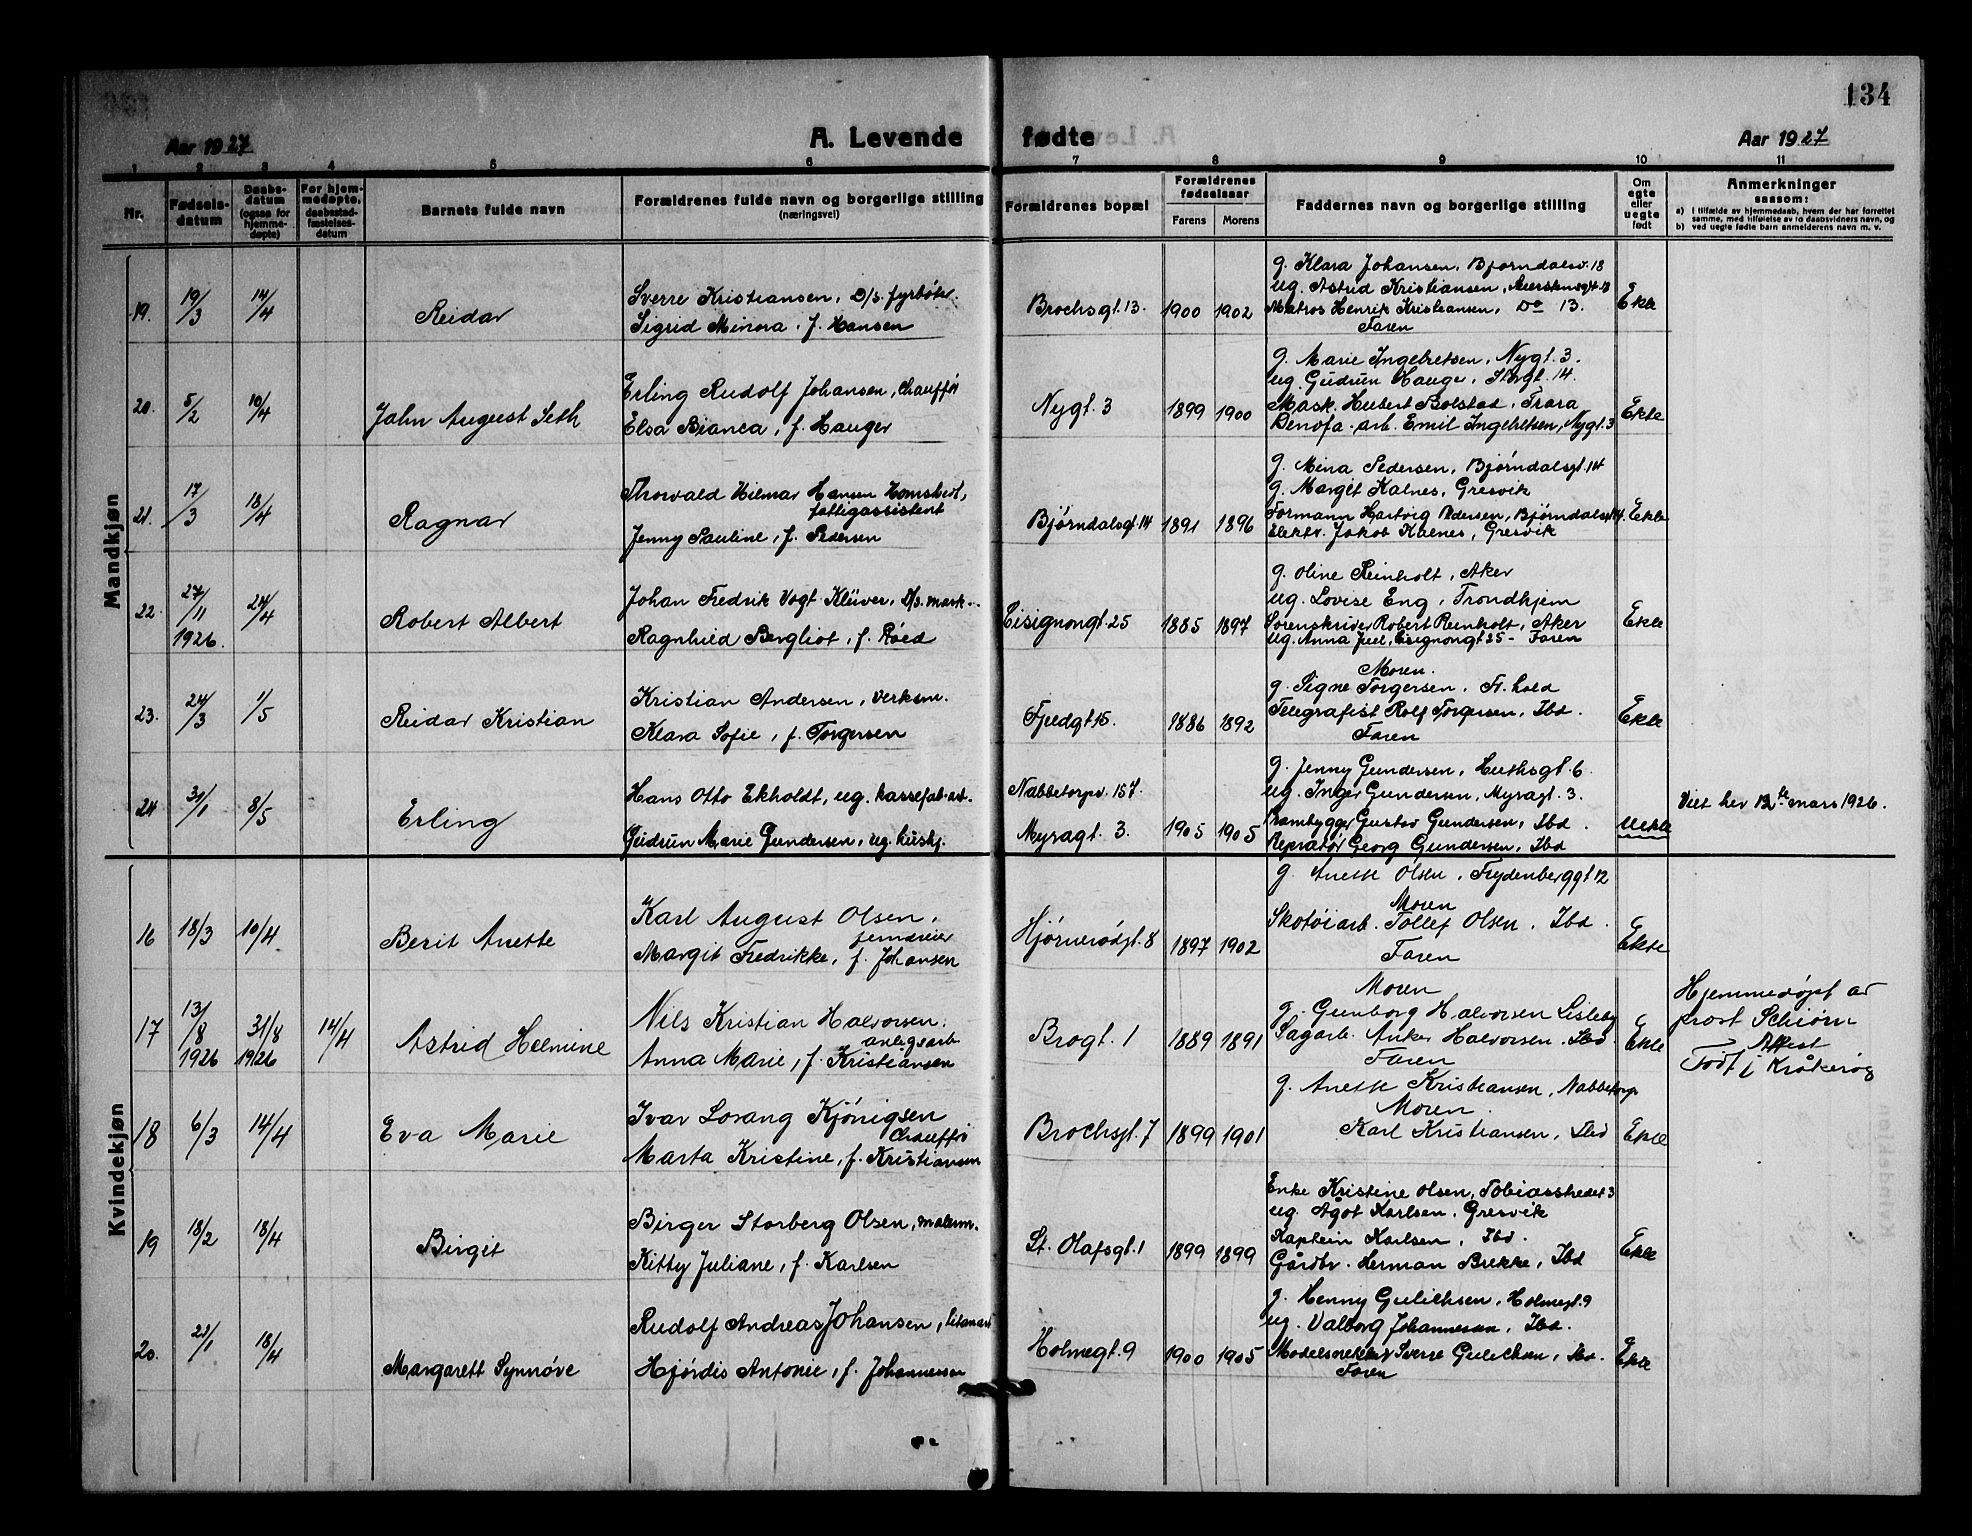 134
Aar 1927
A. Levende fødte
Aar 1927
1 2 3 4 5 6 7 8 9 10 11
Nr.
Fødsels-
datum
Daabs-
datum
(ogsaa for
hjemme-
døpte)
For hjem-
medøpte,
daabestad-
fæstelses-
datum
Barnets fulde navn
Forældrenes fulde navn og borgerlige stilling
(næringsvei)
Forældrenes bopæl
Forældrenes
fødselsaar
Farens Morens
Faddernes navn og borgerlige stilling
Om
egte
eller
uegte
født
Anmerkninger
saasom:
a) i tilfælde av hjemmedaab, hvem der har forrettet
samme, med tilføielse av to daabsvidners navn, og
b) ved uegte fødte barn anmelderens navn m. v.
Mandkjøn
19. 19/3 14/4 Reidar
Sverre Kristiansen, D/s. fyrbøter.
Sigrid Minora, f. Hansen
Brochsgt. 13. 1900 1902
g. Klara Johansen, Bjørndalsv. 18
ug. Astrid Kristiansen,
Matros Henrik Kristiansen, Do 13.
Faren
Ekte
20. 5/2 10/4 Jahn August Seth
Erling Rudolf Johansen, Chauffør
Elsa Bianca, f. Hauger
Nygt. 3 1899 1900
g. Marie Ingebretsen, Nygt. 3.
ug. Gudrun Hauge, Storgt. 14.
Mask. Hubert Bolstad, Trara
Denofa-arb. Emil Ingebretsen, Nygt. 3
Ekte
21. 17/3 18/4 Ragnar
Thorvald Hilmar Hansen Homstvedt,
fattigassistent
Jenny Pauline, f. Pedersen
Bjørndalsgt 14 1891 1896
g. Mina Pedersen, Bjørndalsgt. 14
g. Margit Kalnes, Gresvik
Formann Hartvig Pedersen, Bjørndalsgt 14.
Elektr. Jakob Kalnes, Gresvik
Ekte
22. 27/11 1926. 24/4 Robert Albert
Johan Fredrik Vogt Klüver, D/s. mask..
Ragnhild Bergliot, f. Røed
Cisignongt. 25 1885 1897
g. Oline Reinholt, Aker
ug. Lovise Eng, Trondhjem
Sorenskriver Robert Reinholt, Aker
ug. Anna Juel, Cisignongt 25 - Faren
Ekte
23. 24/3 1/5 Reidar Kristian
Kristian Andersen, verksm.
Klara Sofie, f. Torgersen
Fjeldgt 15. 1886 1892
Moren.
g. Signe Torgersen, Fr.hald
Telegrafist Rolf Torgersen, Ibd.
Faren
Ekte
24 31/1 8/5 Erling
Hans Otto Ekholdt, ug. kassefab.arb.
Gudrun Marie Gundersen, ug. hushj.
Nabbetorpv. 157.
Myragt. 3. 1905 1905
g. Jenny Gundersen, Huthsgt. 6.
ug. Inger Gundersen, Myragt. 3.
Prambygger Gustav Gundersen, Ibd.
Repratør Georg Gundersen, Ibd
Uekte
Viet her 12te mars 1926.
Kvindekjøn
16 18/3 10/4 Berit Anette
Karl August Olsen,
Margit Fredrikke, f. Johansen
Hjørnerødgt. 8 1897 1902
g. Anette Olsen, Frydenberggt 12
Moren
Skotøiarb. Tollef Olsen, Ibd.
Faren
Ekte
17 13/8 1926 31/8 1926 14/4 Astrid Helmine
Nils Kristian Halvorsen,
anlegsarb
Anna Marie, f. Kristiansen
Brogt. 1 1889 1891
Moren
g. Gunborg Halvorsen Lisleby
Sagarb. Anker Halvorsen, Ibd.
Faren
Ekte
Hjemmedøpt av
prost Schiørn
Attest
Født i Kråkerøy
18 6/3 14/4 Eva Marie
Ivar Lorang Kjønigsen
Chauffør
Marta Kristine, f. Kristiansen
Brochsgt. 7 1899 1901
g. Anette Kristiansen, Nabbetorp
Moren.
Karl Kristiansen, Ibd
Ekte
19 18/2 18/4 Birgit
Birger Storberg Olsen, malerm.
Kitty Juliane, f. Karlsen
St. Olafsgt. 1 1899 1899
Enke Kristine Olsen, Tobiasstredet 3
ug. Ågot Karlsen, Gresvik
Kaptein Karlsen, Ibd.
Gårdbr. Herman Brekke, Ibd
Ekte
20. 21/1 18/4 Margarett Synnøve
Rudolf Andreas Johansen,
Hjørdis Antonie, f. Johannessen
Holmegt. 9 1900 1905
g. Henny Gulichsen, Holmegt. 9
ug. Valborg Johannessen, Ibd.
Modelsnekker Sverre Gulichsen, Ibd.
Faren
Ekte